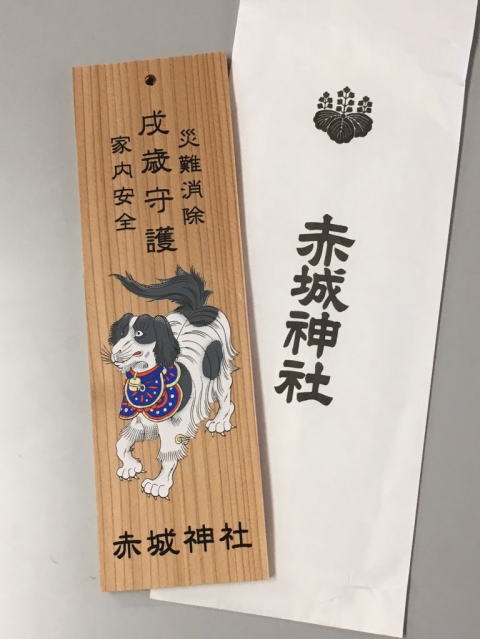 災難消除
戌歳守護
家内安全
赤城神社
赤城神社